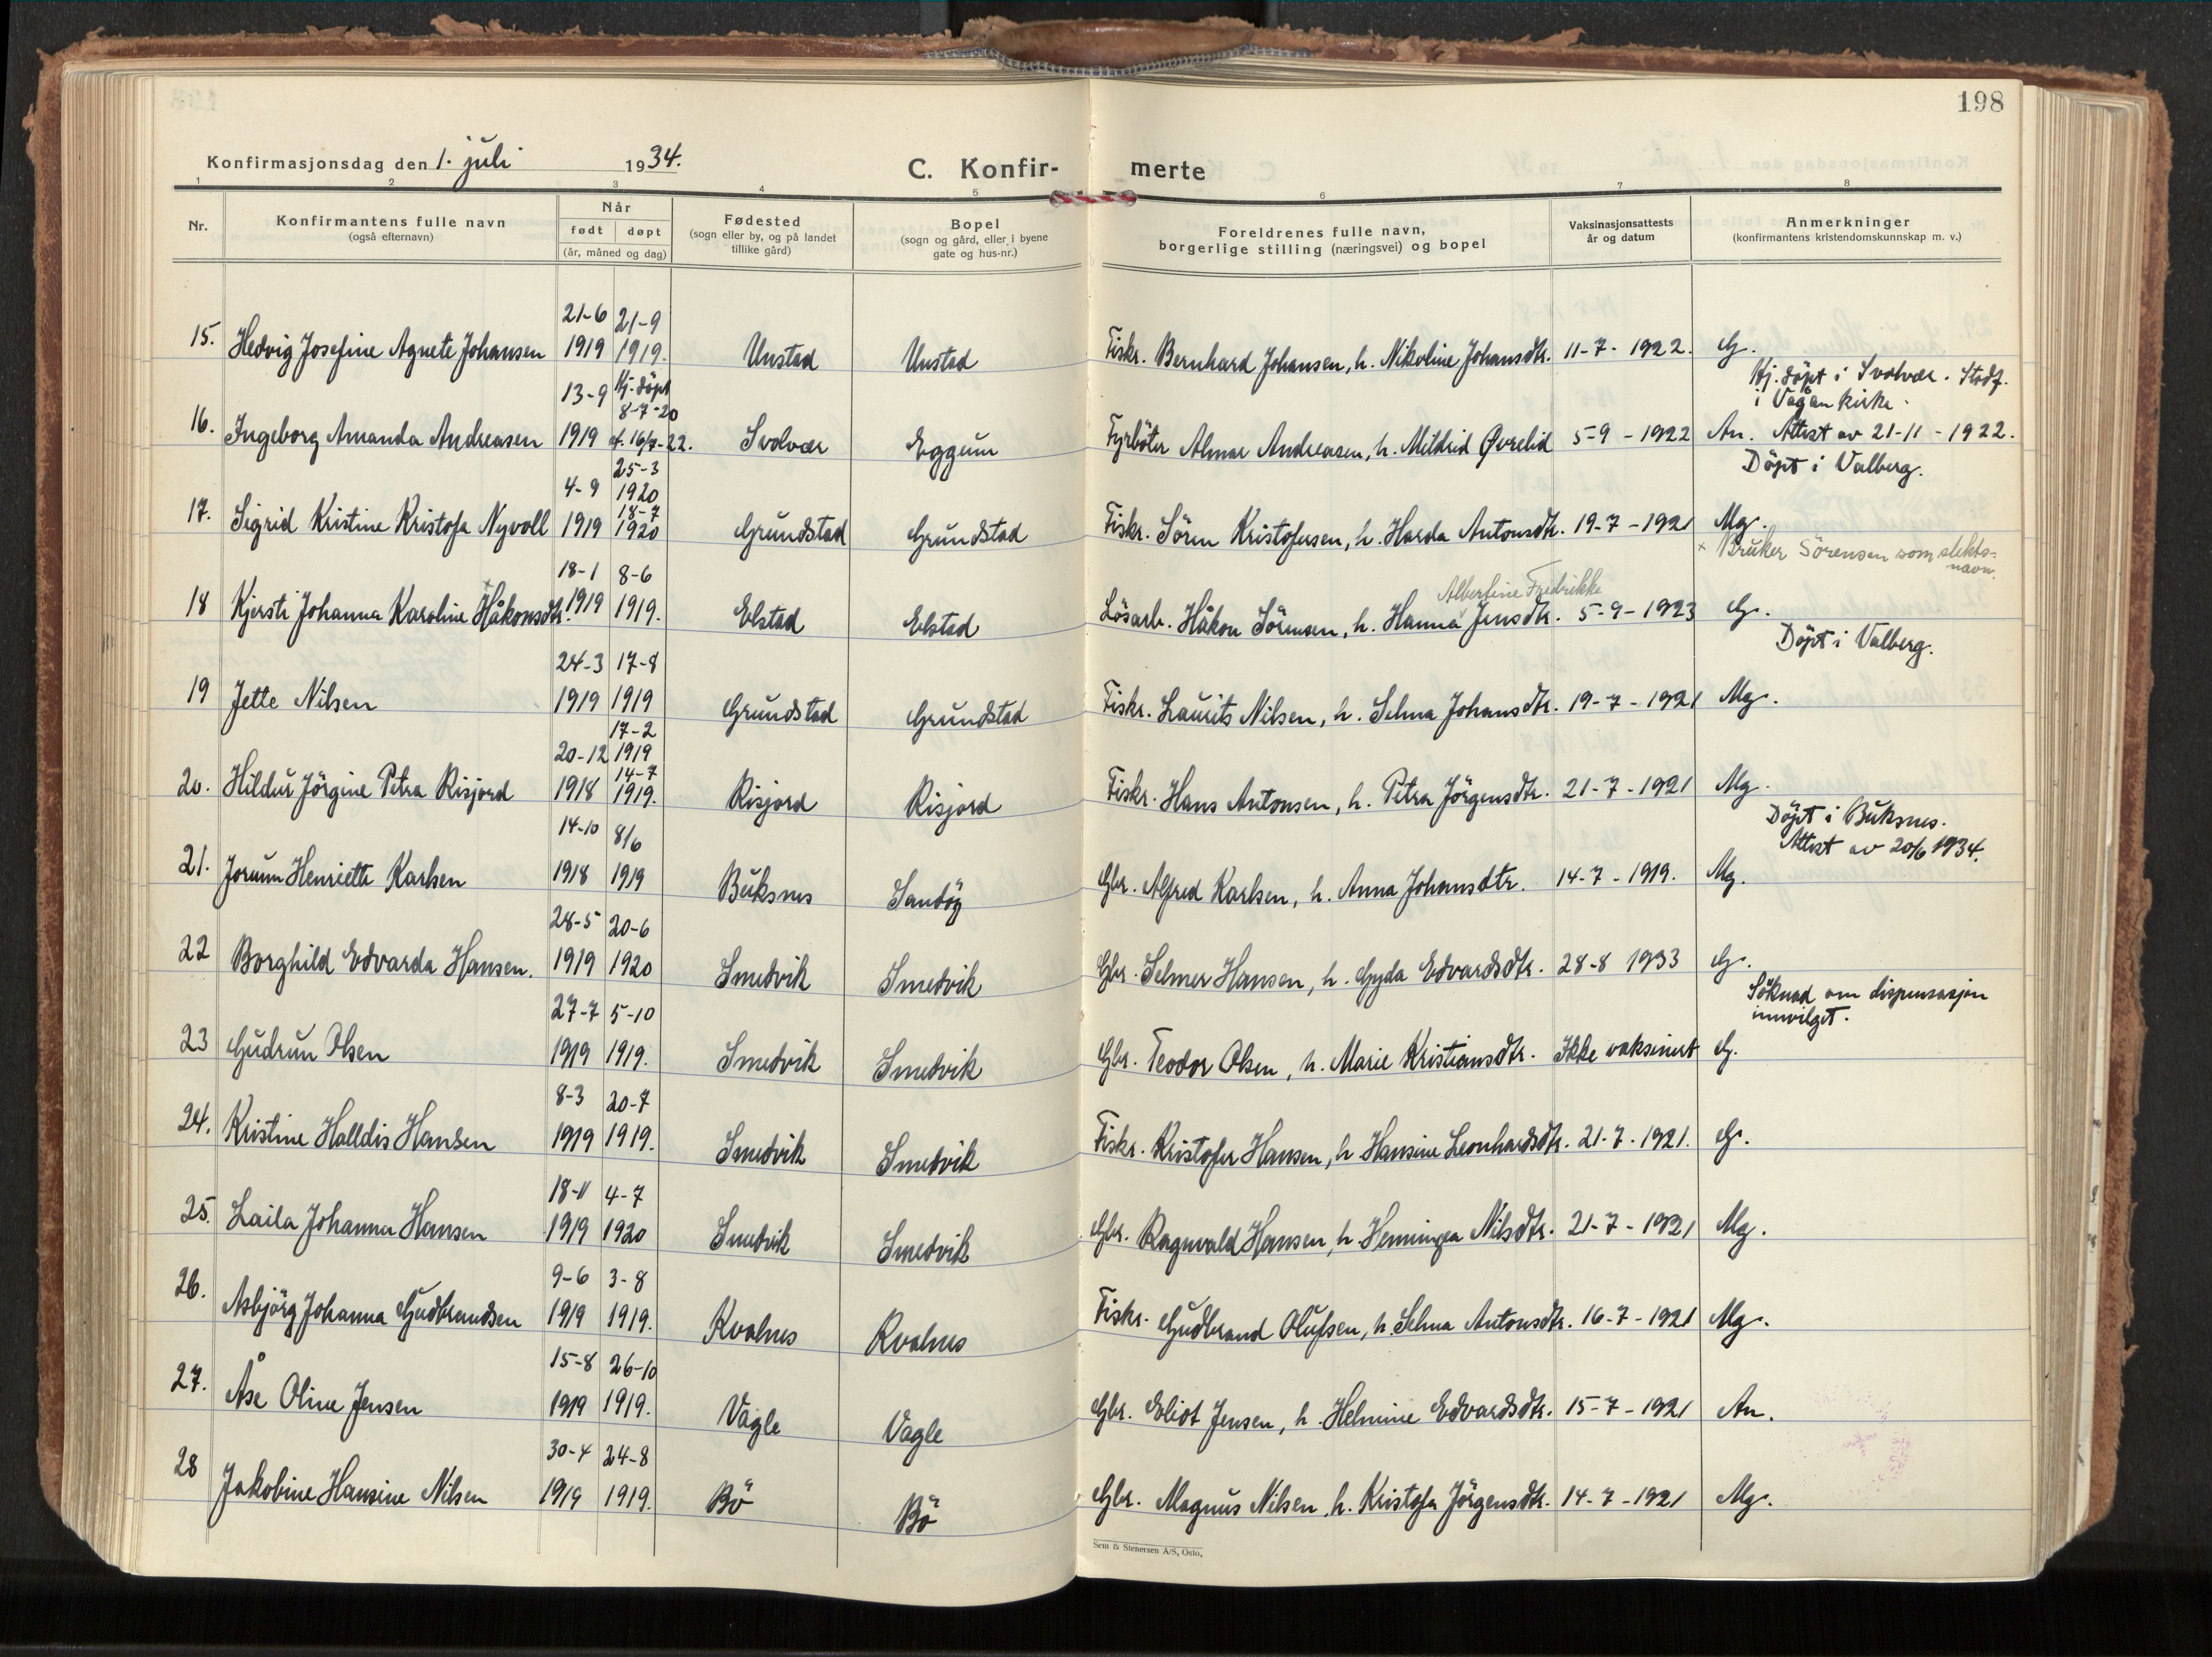 198
Konfirmasjonsdag den 1. juli 1934.
C. Konfir- merte
1 2 3 4 5 6 7 8
Nr.
Konfirmantens fulle navn
(også efternavn)
Når
født døpt
(år, måned og dag)
Fødested
(sogn eller by, og på landet
tillike gård)
Bopel
(sogn og gård, eller i byene
gate og hus-nr.)
Foreldrenes fulle navn,
borgerlige stilling (næringsvei) og bopel
Vaksinasjonsattests
år og datum
Anmerkninger
(konfirmantens kristendomskunnskap m. v.)
21-6 21-9
15. Hedvig Josefine Agnete Johansen 1919 1919. Unstad Unstad Fiskr. Bernhard Johansen, h. Nikoline Johansdtr. 11-7-1922. G.
13-9 Hj. döpt 8-7-20
Hj. döpt i Svolvær. Stadf.
i Vågan kirke.
16. Ingeborg Amanda Andreasen 1919 st. 16/7-22. Svolvær Eggum Fyrböter Almar Andreasen, h. Mildrid Øvrelid 5-9-1922 An. Attest av 21-11-1922.
4-9 25-3 1920
Döpt i Valberg.
17. Sigrid Kristine Kristofa Nyvoll 1919 18-7 1920 Grundstad Grundstad Fiskr. Sören Kristofersen, h. Harda Antonsdtr. 19-7-1921 Mg.
× Bruker Sörensen som slekts-
navn.
18-1 8-6
Albertine Fredrikke
18 Kjersti Johanna Karoline × Håkonsdtr. 1919 1919. Elstad Elstad Lösarb. Håkon Sörensen, h. Hanna Jensdtr. 5-9-1923 G.
Döpt i Valberg.
24-3 17-8
19 Jette Nilsen 1919 1919 Grundstad Grundstad Fiskr. Laurits Nilsen, h. Selma Johansdtr. 19-7-1921 Mg.
20-12 17-2 1919
20. Hildur Jörgine Petra Risjord 1918 14-7 1919. Risjord Risjord Fiskr. Hans Antonsen, h. Petra Jörgensdtr. 21-7-1921 Mg.
14-10 8/6
Döpt i Buksnes.
Attest av 20/6 1934.
21. Jorunn Henriette Karlsen 1918 1919 Buksnes Sandöy Gbr. Alfred Karlsen, h. Anna Johansdtr. 14-7-1919. Mg.
28-5 20-6
22 Borghild Edvarda Hansen. 1919 1920 Smedvik Smedvik Gbr. Selmer Hansen, h. Gyda Edvardsdtr. 28-8 1933 G.
27-7 5-10
Söknad om dispensasjon
innvilget.
23 Gudrun Olsen 1919 1919. Smedvik Smedvik Gbr. Teodor Olsen, h. Marie Kristiansdtr. Ikke vaksinert G.
8-3 20-7
24. Kristine Halldis Hansen 1919 1919. Smedvik Smedvik Fiskr. Kristofer Hansen, h. Hansine Leonhardsdtr. 21-7-1921. G.
18-11 4-7
25. Laila Johanna Hansen 1919 1920 Smedvik Smedvik Gbr. Ragnvald Hansen, h. Henningea Nilsdtr. 21-7-1921 Mg.
9-6 3-8
26. Asbjörg Johanna Gudbrandsen 1919 1919. Kvalnes Kvalnes Fiskr. Gudbrand Olufsen, h. Selma Antonsdtr. 16-7-1921 Mg.
15-8 26-10
27. Åse Oline Jensen 1919 1919. Vagle Vagle Gbr. Eliot Jensen, h. Helmine Edvardsdtr. 15-7-1921 An.
30-4 24-8
28 Jakobine Hansine Nilsen 1919 1919. Bö Bö Gbr. Magnus Nilsen, h. Kristofa Jörgensdtr. 14-7-1921 Mg.
Sem & Stenersen A/S, Oslo,